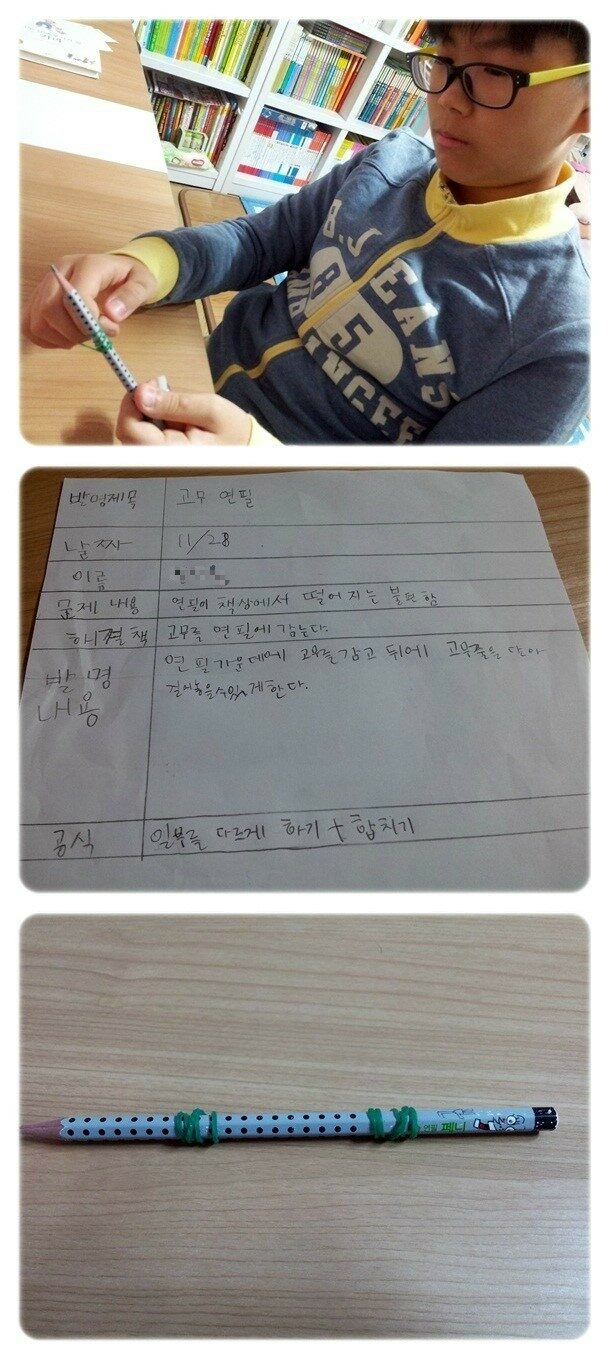 B.JEANS
85
발명제목 고무 연필
날짜 11/28
이름
문제 내용 연필이 책상에서 떨어지는 불편함
해결책 고무를 연필에 감는다.
발명 내용 연필가운데에 고무줄감고 뒤에 고무줄을 달아
걸어놓을수있게한다.
공식 일부를 다르게 하기 + 합치기
연필 페니